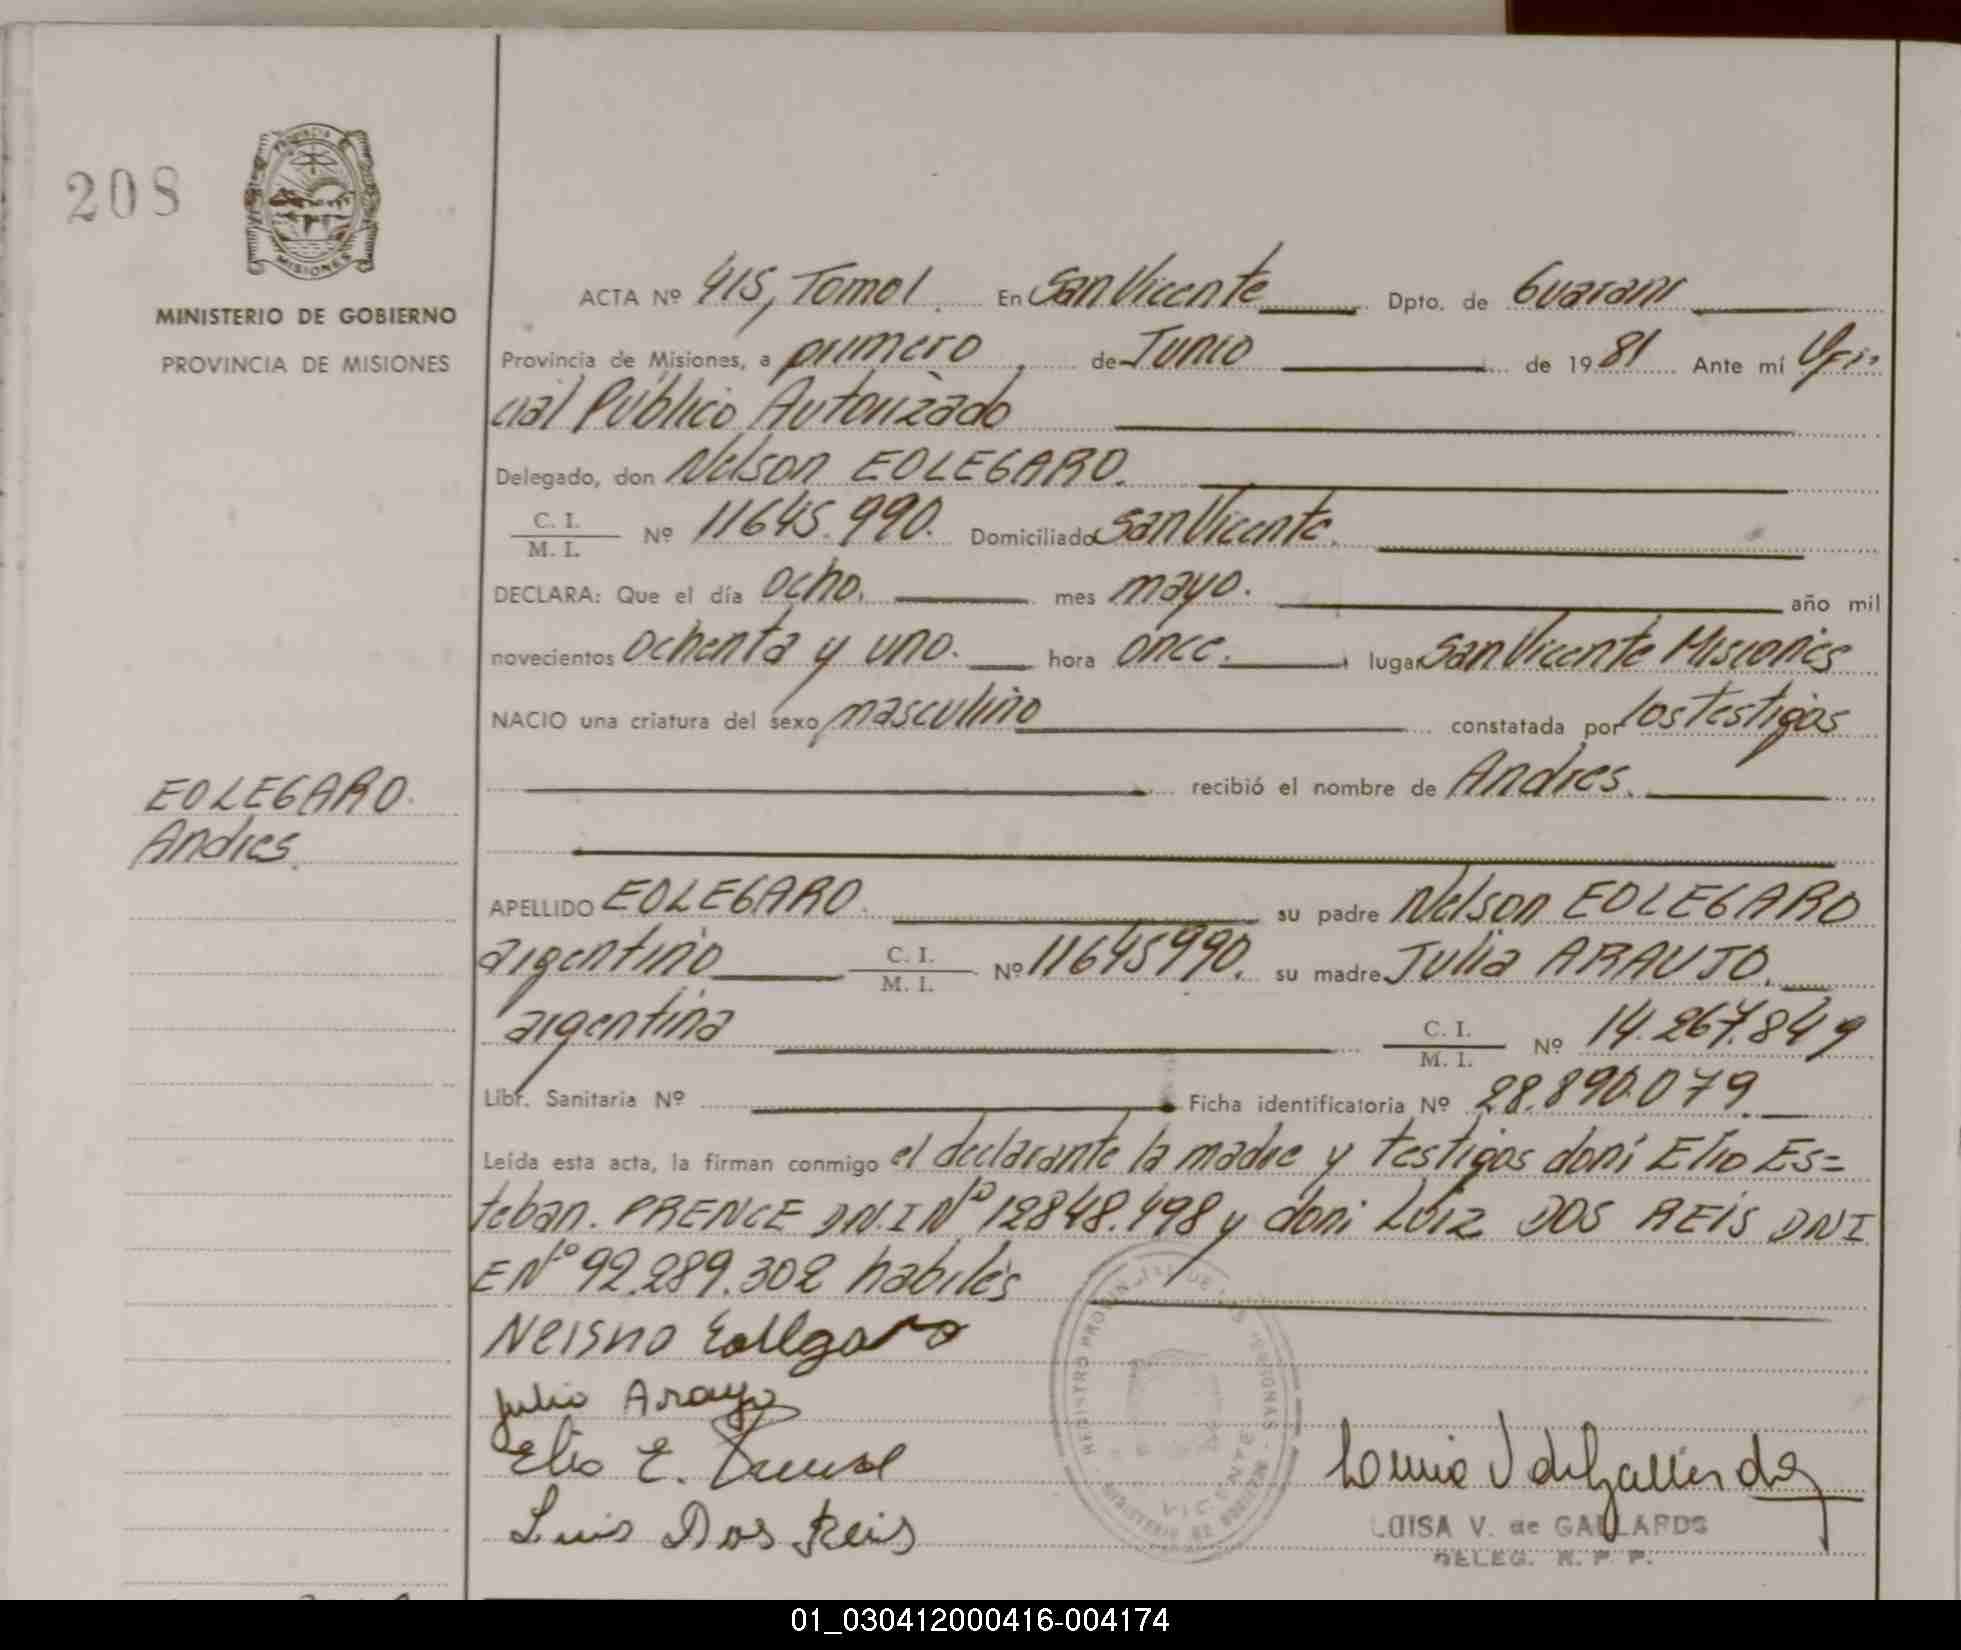 208
PROVINCIA
MISIONES
MINISTERIO DE GOBIERNO
PROVINCIA DE MISIONES
ACTA Nº 415, Tomo I. En San Vicente Dpto. de Guarani
Provincia de Misiones, a primero de Junio de 1981 Ante mí Ofi-
cial Público Autorizado
Delegado, don Nelson EOLEGARO.
C. I.
M. I. Nº 11645.990. Domiciliado San Vicente.
DECLARA: Que el día ocho. mes mayo. año mil
novecientos ochenta y uno. hora once. lugar San Vicente Misiones
NACIO una criatura del sexo masculino constatada por los testigos
recibió el nombre de Andres.
EOLEGARO.
Andres.
APELLIDO EOLEGARO. su padre Nelson EOLEGARO
argentino C. I. M. I. Nº 11645990. su madre Julia ARAUJO.
argentina C. I. M. I. Nº 14.267.849
Libr. Sanitaria Nº Ficha identificatoria Nº 28.890.079.
Leída esta acta, la firman conmigo el declarante la madre y testigos doni Elio Es=
teban. PRENCE DN.I Nº 12848.498 y doni Luiz DOS REIS DNI
E Nº 92.289.302 habiles
Neisno Eollgaro
Julia Araujo
Elio E.
Luis Dos Reis
REGISTRO PROVINCIAL DE LAS PERSONAS
VICENTE
LUISA V. de GALLARDO
DELEG. R. P. P.
01_030412000416-004174